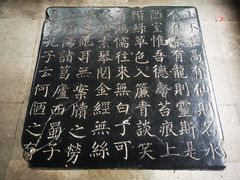 山不在高有仙則名水
不在深有龍則靈斯是
陋室惟吾德馨苔痕上
階綠草色入簾青談笑
有鴻儒往來無白丁可
以調素琴閱金經無絲
竹之亂耳無案牘之勞
形南陽諸葛廬西蜀子
雲亭孔子云何陋之有